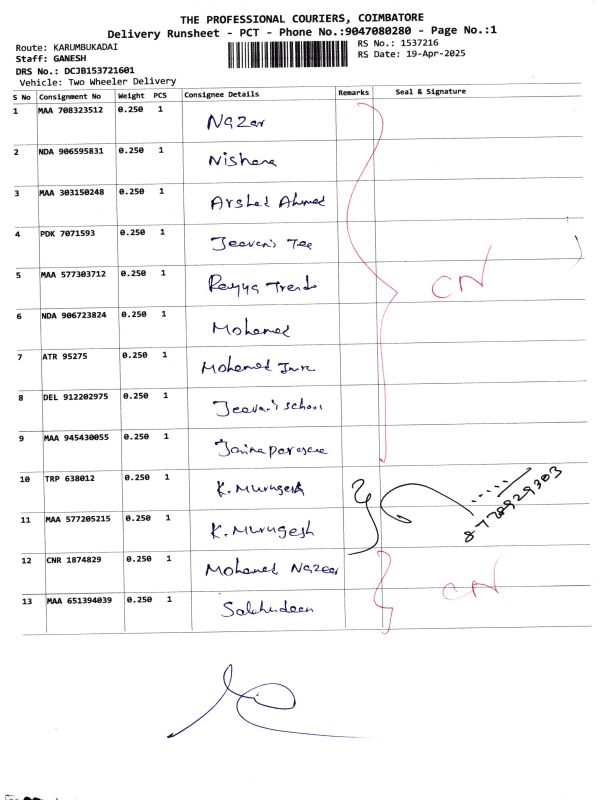 THE PROFESSIONAL COURIERS, COIMBATORE
Delivery Runsheet - PCT - Phone No.:9047080280 - Page No.:1
Route: KARUMBUKADAI
RS No.: 1537216
Staff: GANESH
RS Date: 19-Apr-2025
DRS No.: DCJB153721601
Vehicle: Two Wheeler Delivery
S No Consignment No Weight PCS Consignee Details Remarks Seal & Signature
1 MAA 708323512 0.250 1 Nazar
2 NDA 906595831 0.250 1 Nishana
3 MAA 303150248 0.250 1 Arshad Ahmed
4 PDK 7071593 0.250 1 Jeevan's Tee
5 MAA 577303712 0.250 1 Trends
CN
6 NDA 906723824 0.250 1 Mohamed
7 ATR 95275 0.250 1 Mohamed
8 DEL 912202975 0.250 1 Jeevan's school
9 MAA 945430055 0.250 1
10 TRP 638012 0.250 1 K. Murugesh
8778929303
11 MAA 577205215 0.250 1 K. Murugesh
12 CNR 1874829 0.250 1 Mohamed Nazeer
CN
13 MAA 651394039 0.250 1 Salahudeen